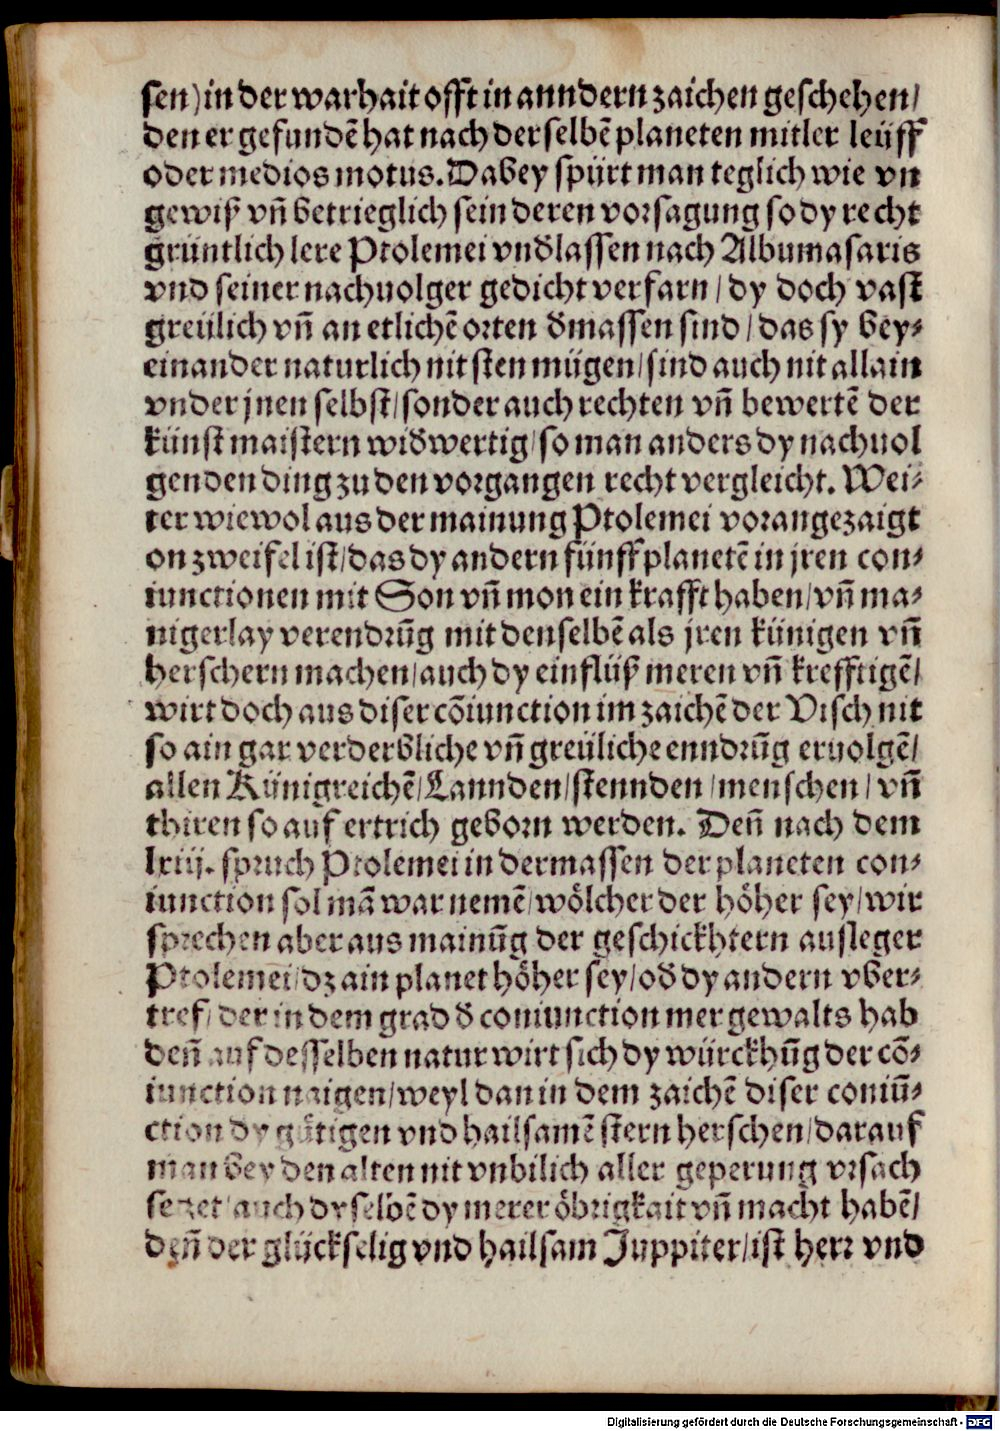 sen) in der warhait offt in anndern zaichen geschehen/
den er gefundē hat nach der selbē planeten mitler leüff
oder medios motus. Dabey spürt man teglich wie vn
gewiß vn̄ betrieglich sein deren vorsagung so dy recht
grüntlich lere Ptolemei vnd̓lassen nach Albumasaris
vnd seiner nachuolger gedicht verfarn / dy doch vast
greülich vn̄ an etlichē orten d̓massen sind / das sy bey⸗
einander naturlich nit sten mügen/ sind auch nit allain
vnder jnen selbst/ sonder auch rechten vn̄ bewertē der
künst maistern wid̓wertig/ so man anders dy nachuol
genden ding zu den vorgangen recht vergleicht. Wei⸗
ter wiewol aus der mainung Ptolemei vorangezaigt
on zweifel ist/ das dy andern fünff planetē in jren con⸗
iunctionen mit Son vn̄ mon ein krafft haben/ vn̄ ma⸗
nigerlay verendrūg mit denselbē als jren künigen vn̄
herschern machen/ auch dy einflüß meren vn̄ krefftigē/
wirt doch aus diser cōiunction im zaichē der Visch nit
so ain gar verderbliche vn̄ greüliche enndrūg eruolgē/
allen Künigreichē/ Lannden/ stennden / menschen / vn̄
thiren so auf ertrich geborn werden. Den̄ nach dem
lxiij. spruch Ptolemei in dermassen der planeten con⸗
iunction sol mā war nemē/ wölcher der höher sey/ wir
sprechen aber aus mainūg der geschickhtern ausleger
Ptolemei/ dz ain planet höher sey/ od̓ dy andern vber⸗
tref/ der in dem grad d̓ coniunction mer gewalts hab
den̄ auf desselben natur wirt sich dy würckhūg der cō⸗
iunction naigen/ weyl dan in dem zaichē diser coniū⸗
ction dy gütigen vnd hailsamē stern herschen/ darauf
man bey den alten nit vnbilich aller geperung vrsach
setzet/ auch dyselbē dy merer öbrigkait vn̄ macht habē/
den̄ der glückselig vnd hailsam Juppiter/ ist herr vnd
Digitalisierung gefördert durch die Deutsche Forschungsgemeinschaft - DFG